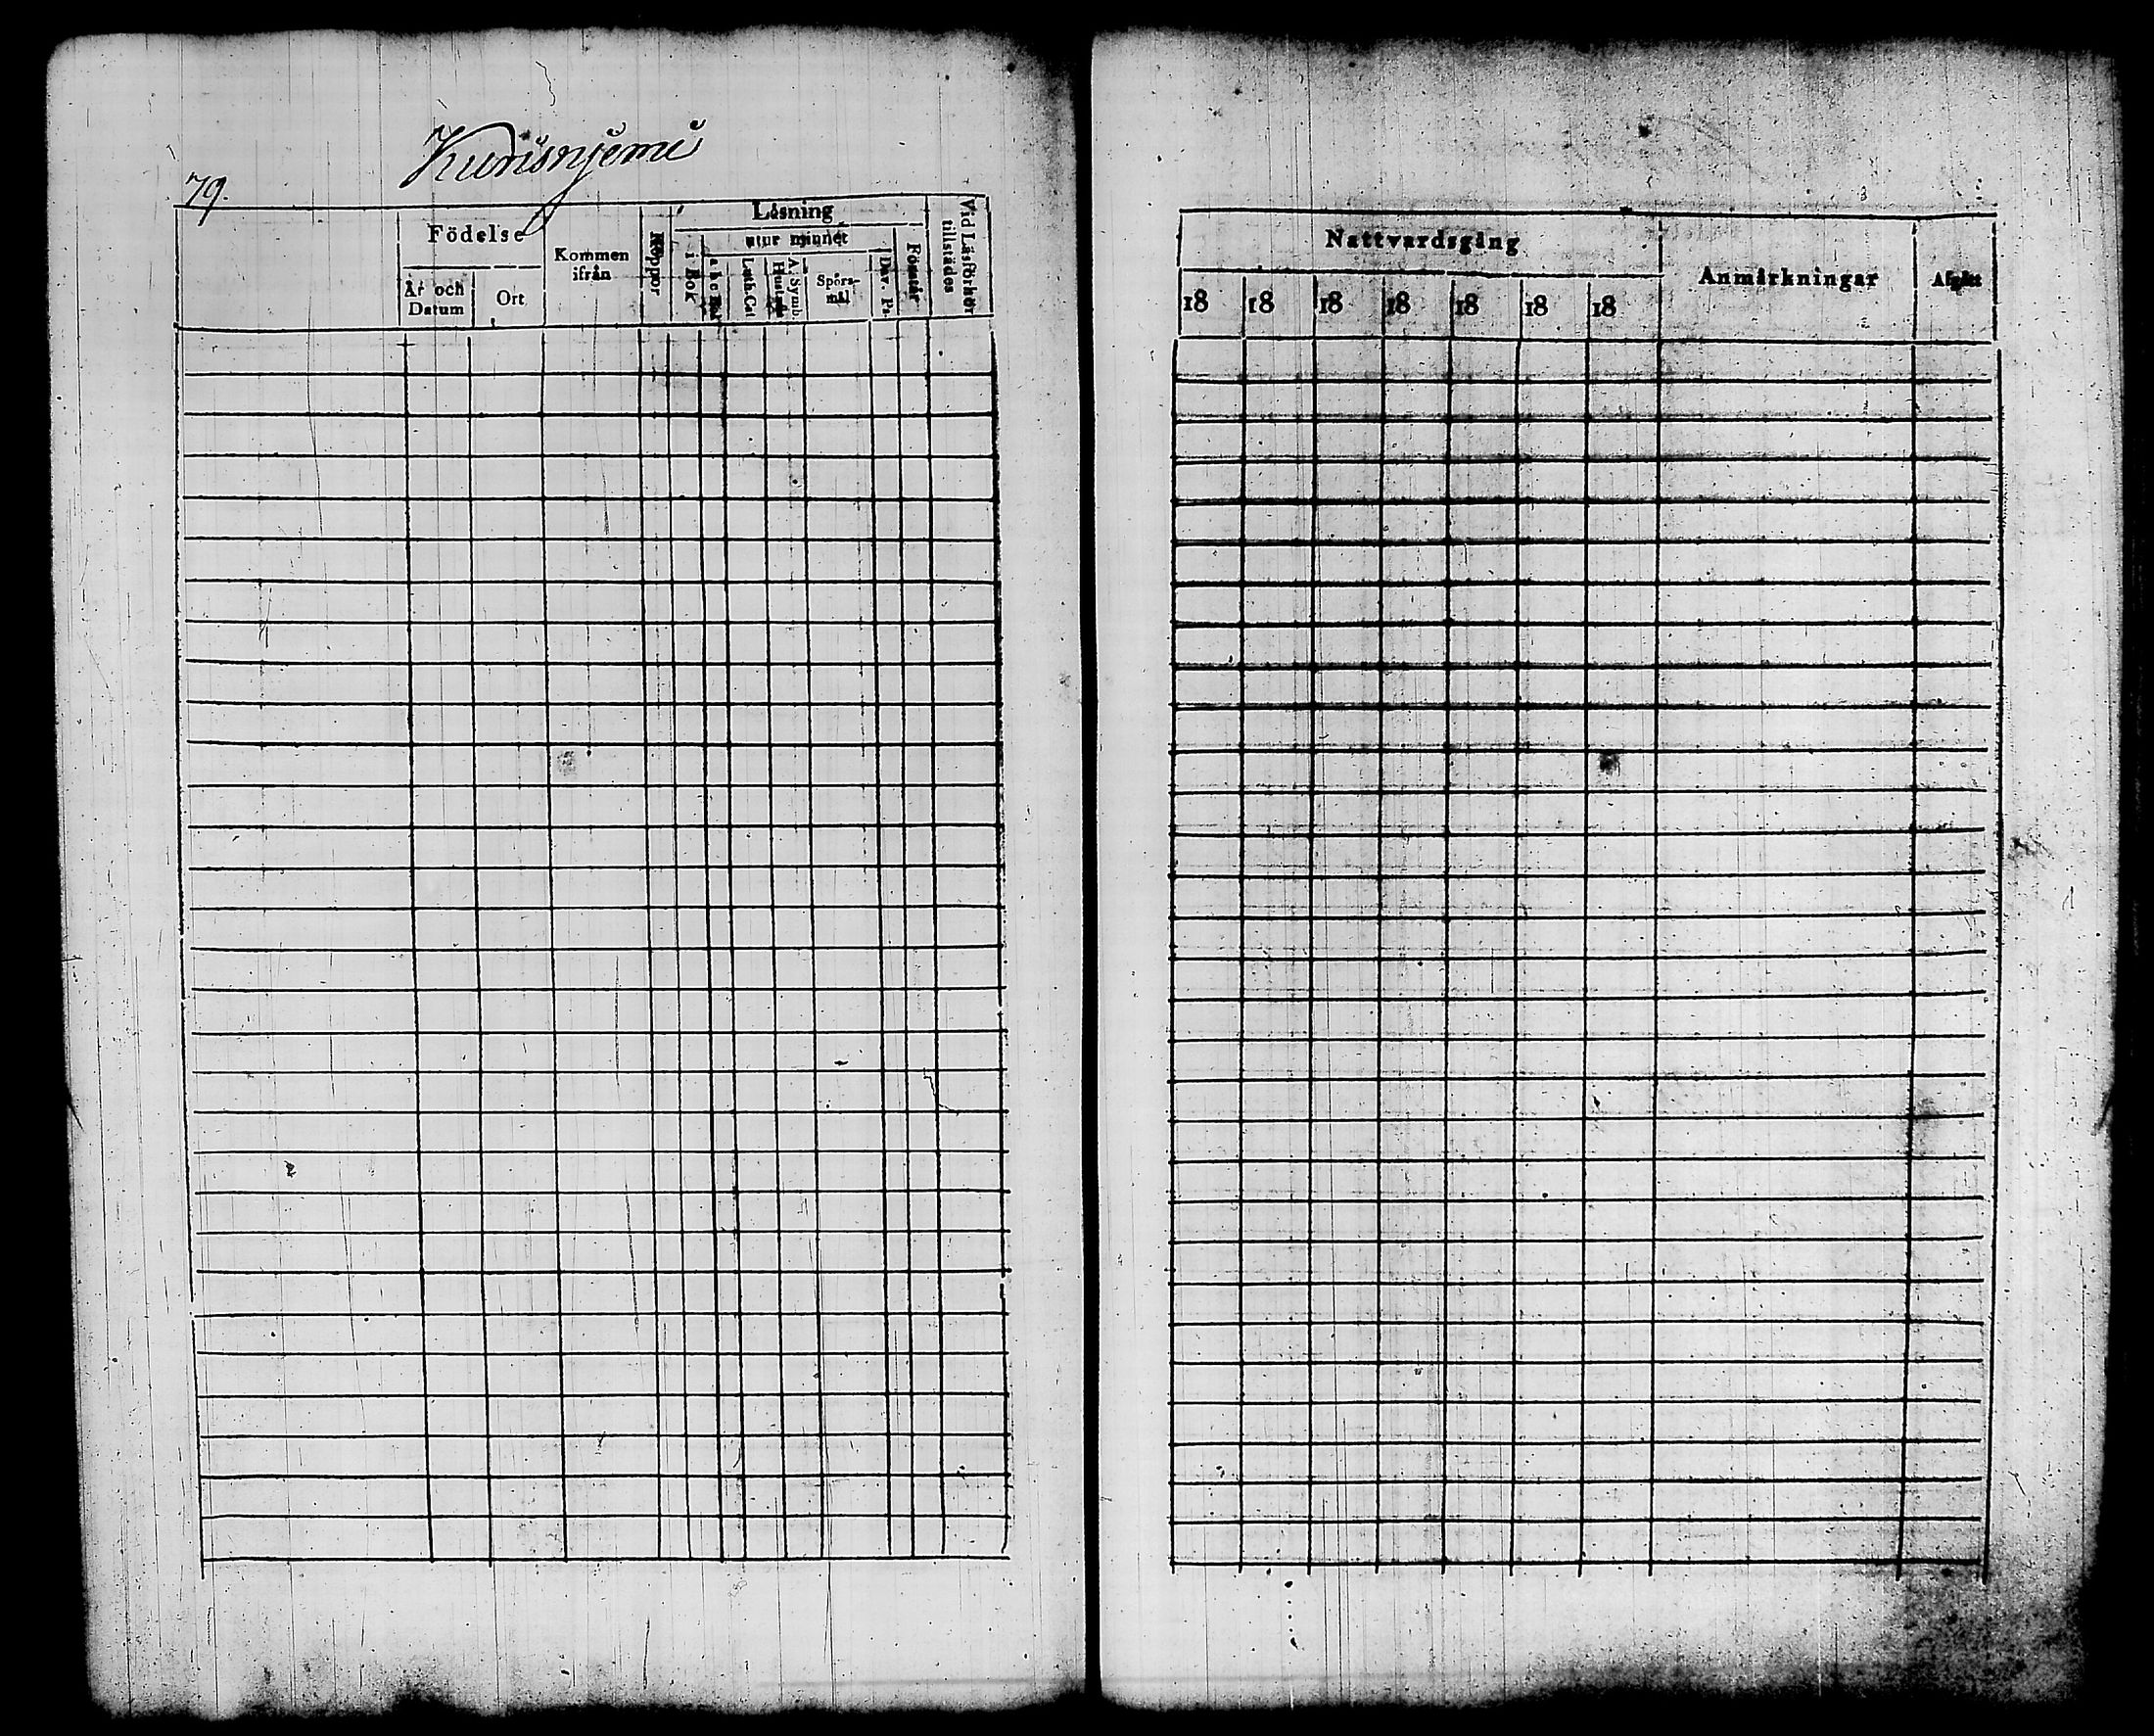 79.
Kurisnjemi
Födelse
År och Datum
Ort
Kommen ifrån
Koppor
Läsning
i Bok
utur minnet
a b c Bok
Luth. Cat
Hustafl.
A. Symb.
Spörsmål
Dav. Ps.
Förstår
Vid Läsförhör tillstädes
Nattvardsgång
18 18 18 18 18 18 18
Anmärkningar
Afgått